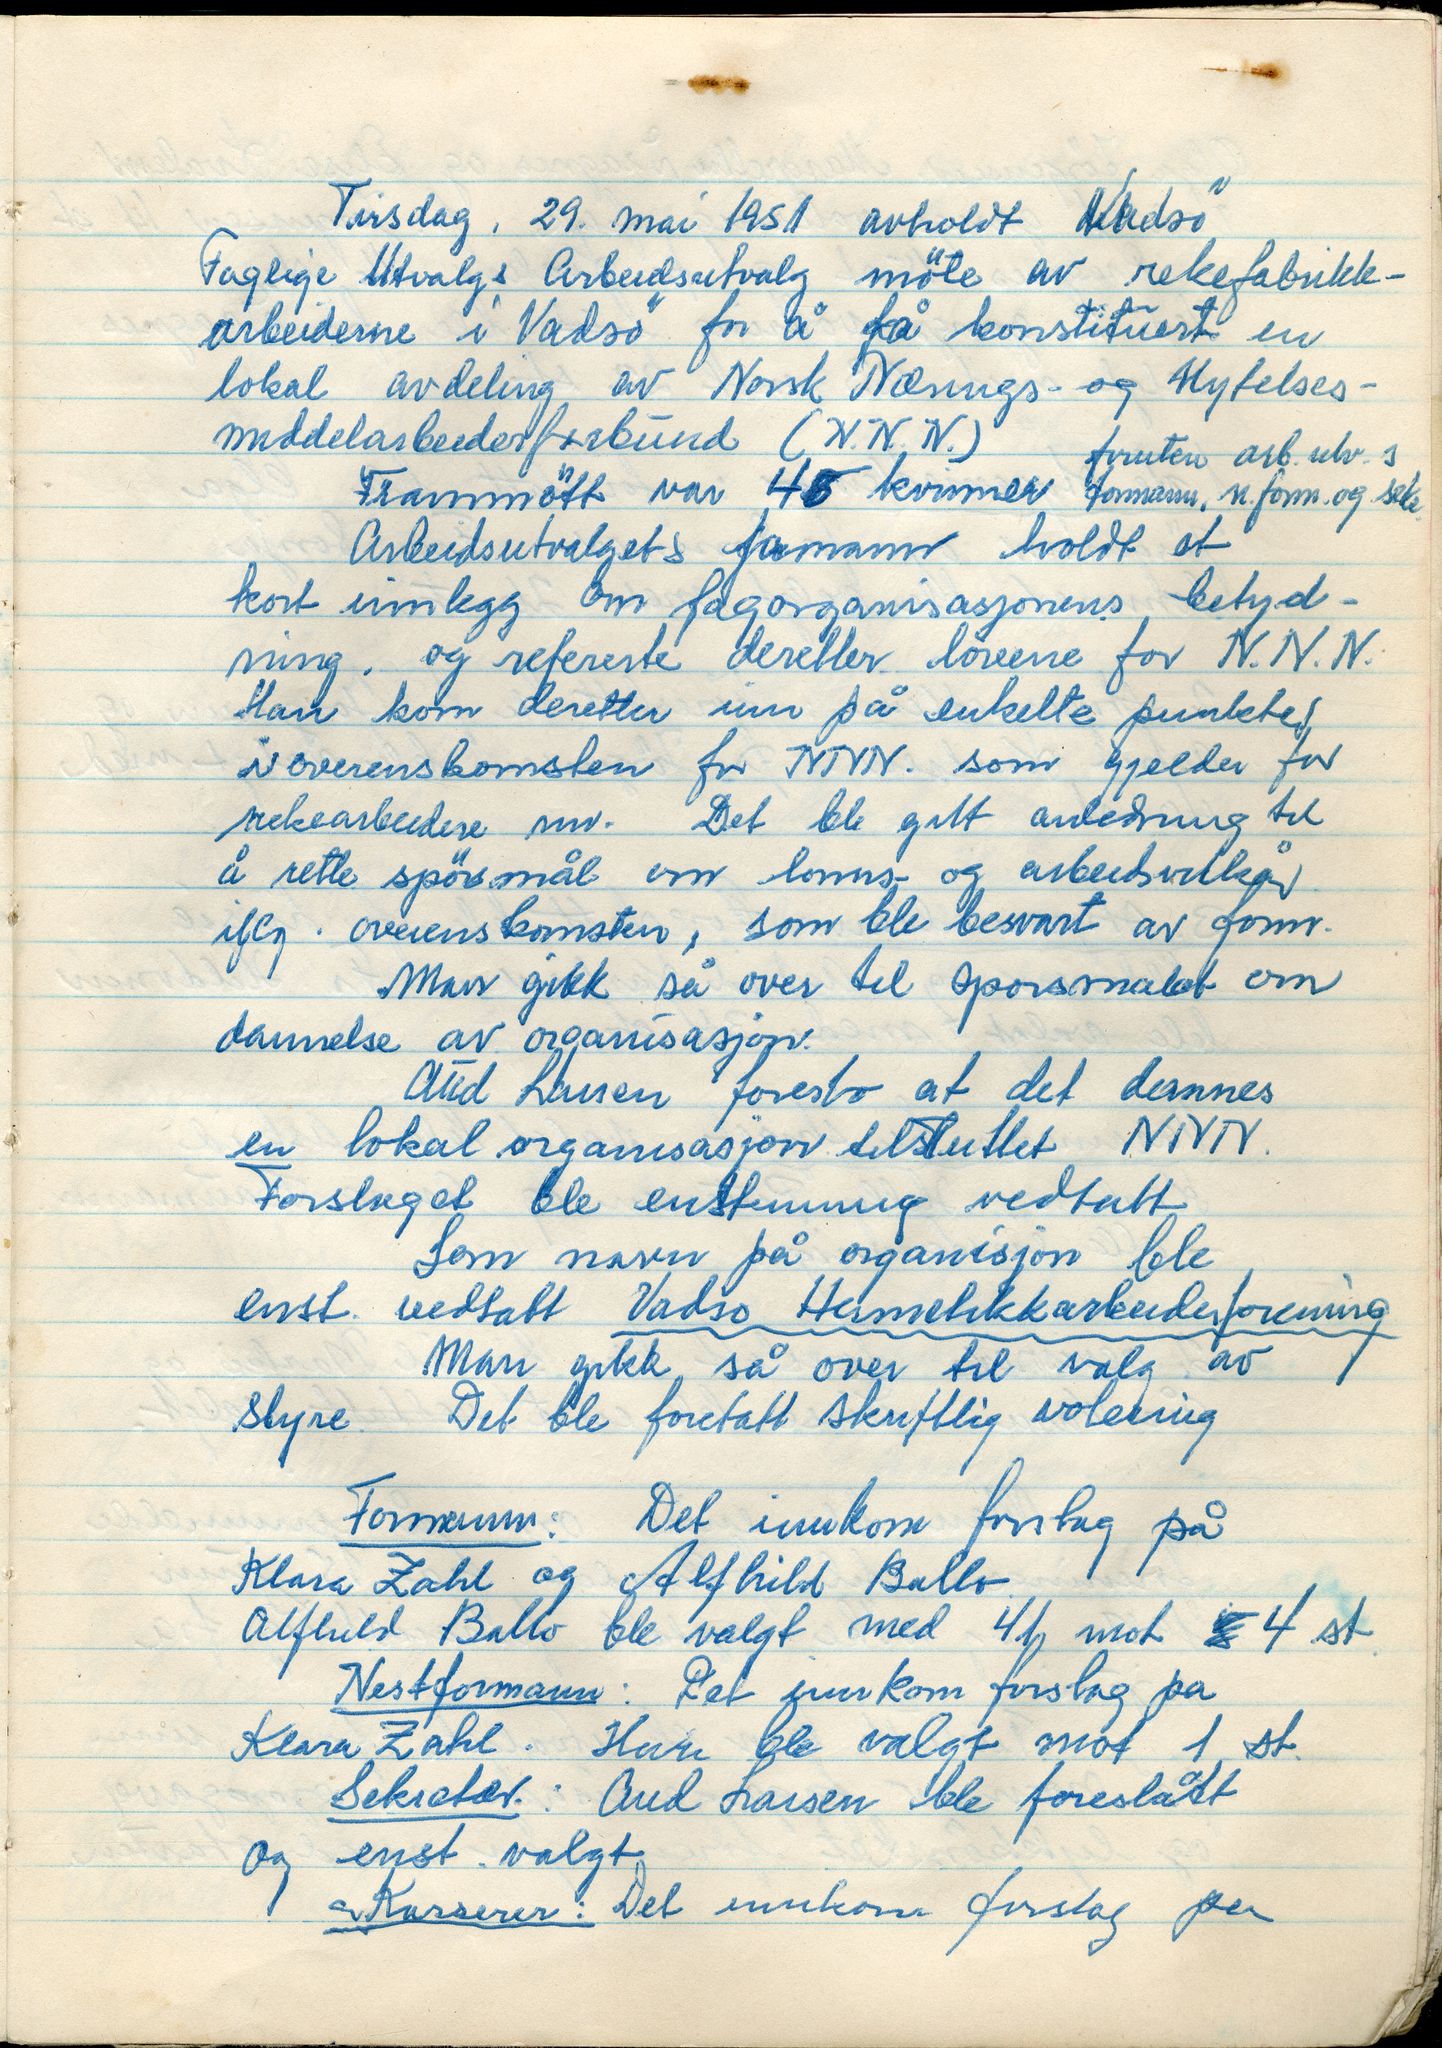 Tirsdag, 29. mai 1951 avholdt Vadsö
Faglige Utvalgs Arbeidsutvalg möte av rekefabrikk-
arbeiderne i Vadsö for å få konstituert en
lokal avdeling av Norsk Nærings- og Nytelses-
middelarbeiderforbund (N.N.N.)
foruten arb. utv. s
Frammött var 45 kvinner formann, n.form. og sekr.
Arbeidsutvalgets formann holdt et
kort innlegg om fagorganisasjonens betyd-
ning, og refererte deretter lovene for N.N.N.
Han kom deretter inn på enkelte punkter
i overenskomsten for NNN. som gjelder for
rekearbeidere mv. Det ble gitt anledning til
å rette spörsmål om lönns- og arbeidsvilkår
iflg. overenskomsten, som ble besvart av form.
Man gikk så over til sporsmalet om
dannelse av organisasjon.
Aud Larsen foreslo at det dannes
en lokal organisasjon tilsluttet NNN.
Forslaget ble enstemmig vedtatt
Som navn på organisjon ble
enst. vedtatt Vadso Hermetikkarbeiderforening
Man gikk så over til valg av
styre. Det ble foretatt skriftlig votering
Formann: Det innkom forslag på
Klara Zahl og Alfhild Ballo
Alfhild Ballo ble valgt med 41 mot 4 st.
Nestformann: Det innkom forslag pa
Klara Zahl. Hun ble valgt mot 1 st.
Sekretær.: Aud Larsen ble foreslått
og enst. valgt
Kasserer: Det innkom forslag pa